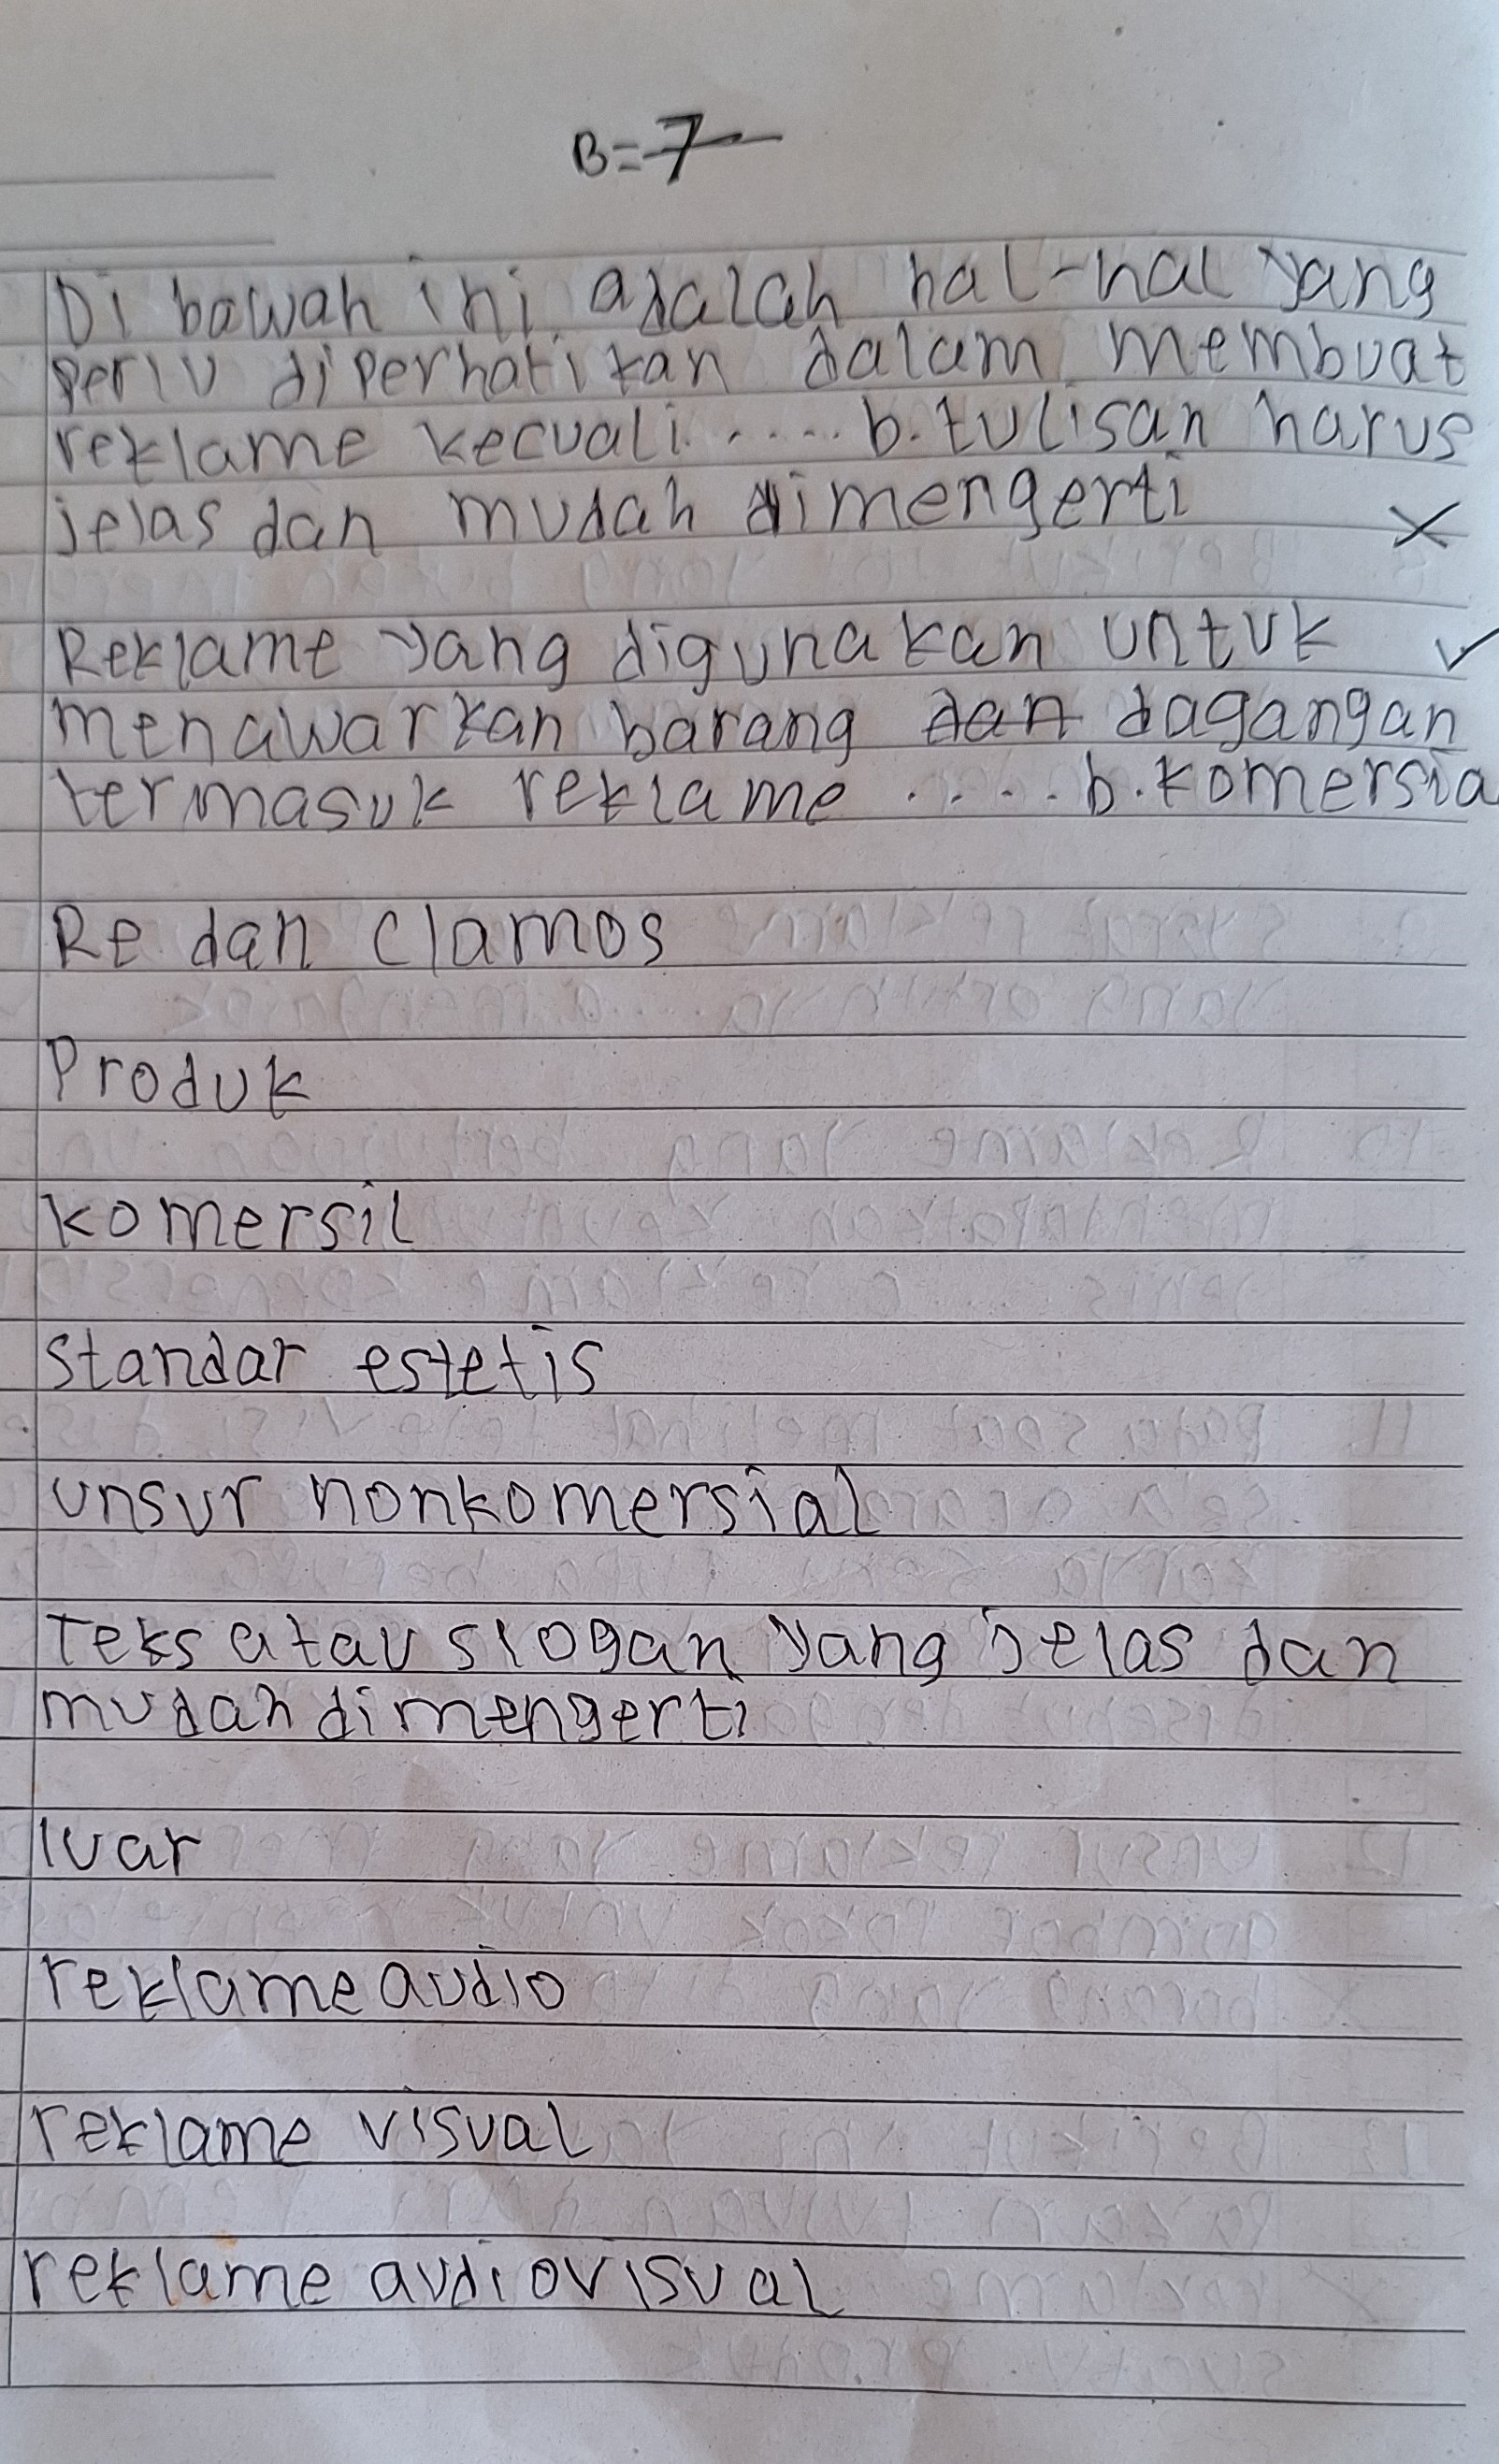 B=7
Di bawah ini adalah hal-hal yang
perlu diperhatikan dalam membuat
reklame kecuali..... b. tulisan harus
jelas dan mudah dimengerti
Reklame yang digunakan untuk
menawarkan barang dan dagangan
termasuk reklame .... b. komersia
Re dan clamos
Produk
komersil
standar estetis
unsur nonkomersial
Teks atau slogan yang jelas dan
mudah dimengerti
luar
reklame audio
reklame visual
reklame audiovisual